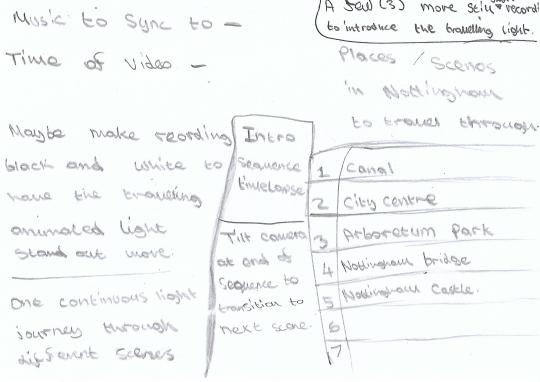 Music to Sync to -
Time of Video -
A few (3) more still recordi
to introduce the travelling light.
Places / Scenes
in Nottingham
to travel through
Maybe make reording
black and white to
have the traveling
animated light
stand out more.
One continuous light
journey through
different scenes
Intro
Sequence
timelapse
Tilt camera
at end of
sequence to
transition to
next scene.
1 Canal
2 City centre
3 Arboretum Park
4 Nottingham bridge
5 Nottingham Castle.
6
7